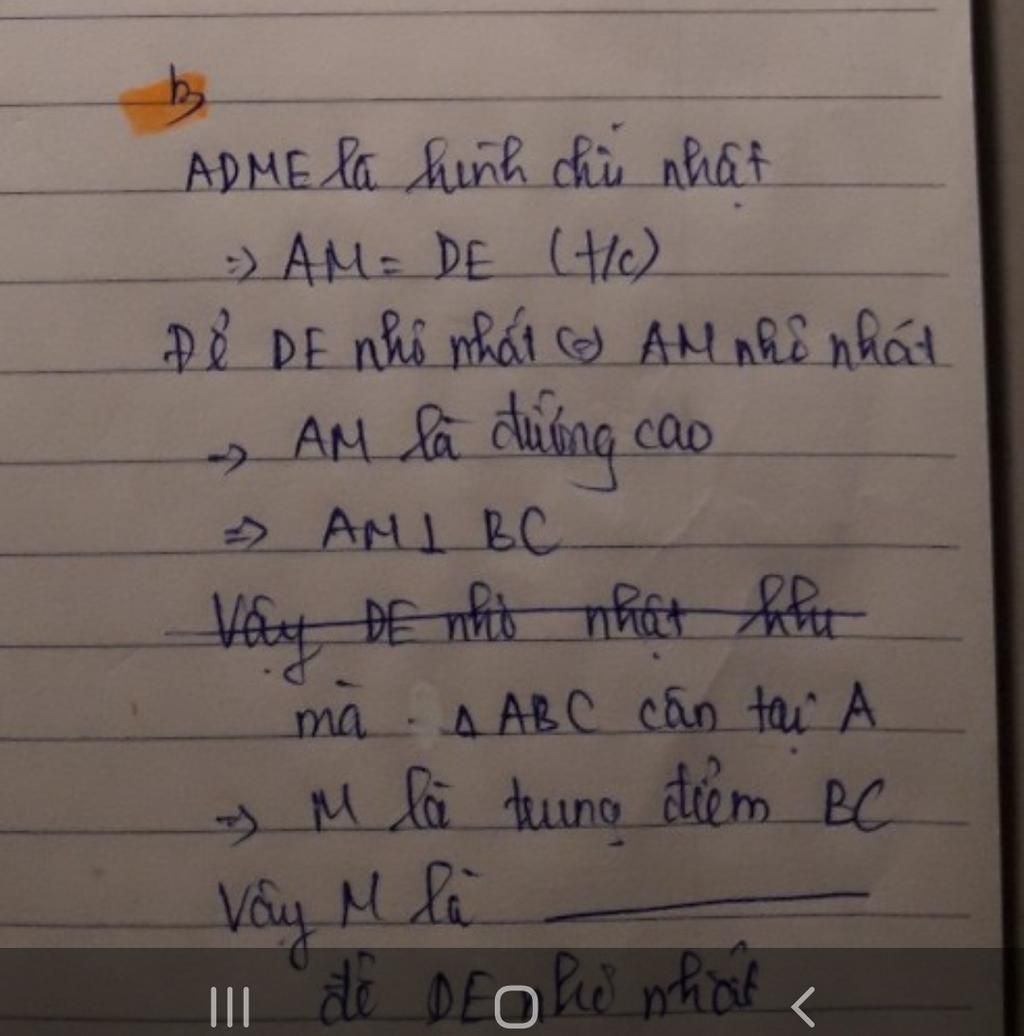 b)
ADME là hình chữ nhật
=> AM = DE (t/c)
Để DE nhỏ nhất <=> AM nhỏ nhất
=> AM là đường cao
=> AM ⊥ BC
Vậy DE nhỏ nhật khu
mà . Δ ABC cân tại A
=> M là trung điểm BC
Vậy M là ————
để DE nhỏ nhất